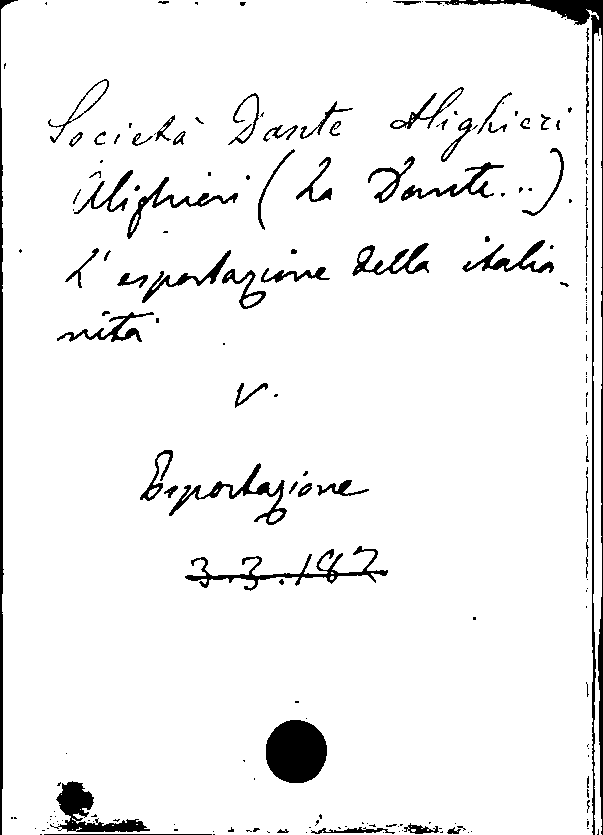 Società Dante Alighieri
Alighieri (La Dante...).
L'esportazione della italia-
nità
V.
Esportazione
3.3.187